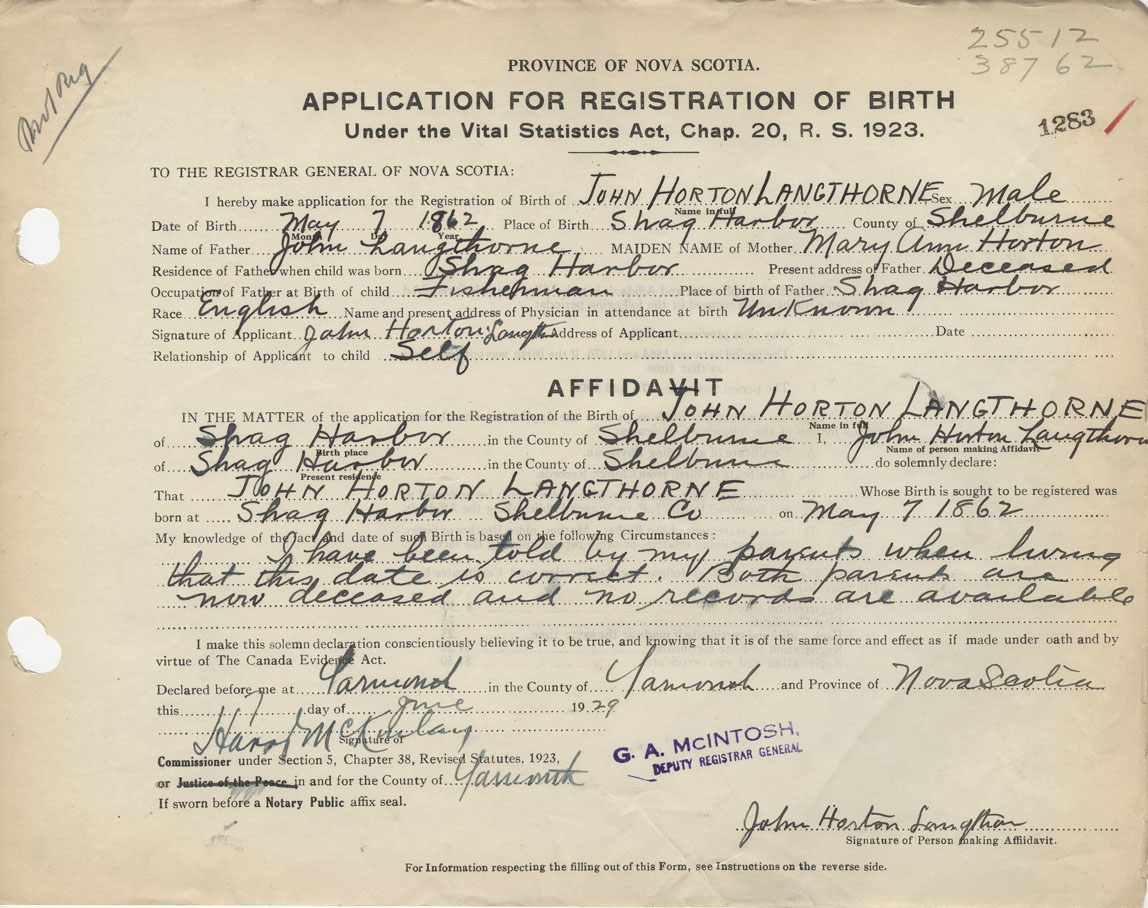 25512
38762
Not Reg
PROVINCE OF NOVA SCOTIA.
APPLICATION FOR REGISTRATION OF BIRTH
Under the Vital Statistics Act, Chap. 20, R. S. 1923.
1283
TO THE REGISTRAR GENERAL OF NOVA SCOTIA:
I hereby make application for the Registration of Birth of JOHN HORTON LANGTHORNE Sex Male
Name in full
Date of Birth May 7 1862 Place of Birth Shag Harbor County of Shelburne
Month Year
Name of Father John Langthorne MAIDEN NAME of Mother Mary Ann Horton
Residence of Father when child was born Shag Harbor Present address of Father Deceased
Occupation of Father at Birth of child Fisherman Place of birth of Father Shag Harbor
Race English Name and present address of Physician in attendance at birth UnKnown
Signature of Applicant John Horton Langth Address of Applicant Date
Relationship of Applicant to child Self
AFFIDAVIT
IN THE MATTER of the application for the Registration of the Birth of JOHN HORTON LANGTHORNE
Name in full
of Shag Harbor in the County of Shelburne I, John Horton Langthorn
Birth place Name of person making Affidavit
of Shag Harbor in the County of Shelburne do solemnly declare:
Present residence
That JOHN HORTON LANGTHORNE Whose Birth is sought to be registered was
born at Shag Harbor Shelburne Co on May 7 1862
My knowledge of the fact and date of such Birth is based on the following Circumstances:
I have been told by my parents when living
that this date is correct. Both parents are
now deceased and no records are available
I make this solemn declaration conscientiously believing it to be true, and knowing that it is of the same force and effect as if made under oath and by
virtue of The Canada Evidence Act.
Declared before me at Yarmouth in the County of Yarmouth and Province of Nova Scotia
this 7 day of June 1929
Signature of
Commissioner under Section 5, Chapter 38, Revised Statutes, 1923,
or Justice of the Peace in and for the County of Yarmouth
If sworn before a Notary Public affix seal.
G. A. McINTOSH,
DEPUTY REGISTRAR GENERAL
John Horton Langthor
Signature of Person making Affidavit.
For Information respecting the filling out of this Form, see Instructions on the reverse side.